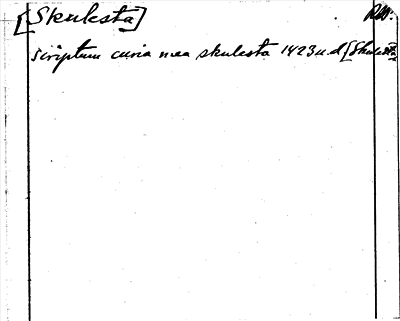 [Skulesta] RW.
scriptum curia mea skulesta 1423 u.d. [Skulesta]